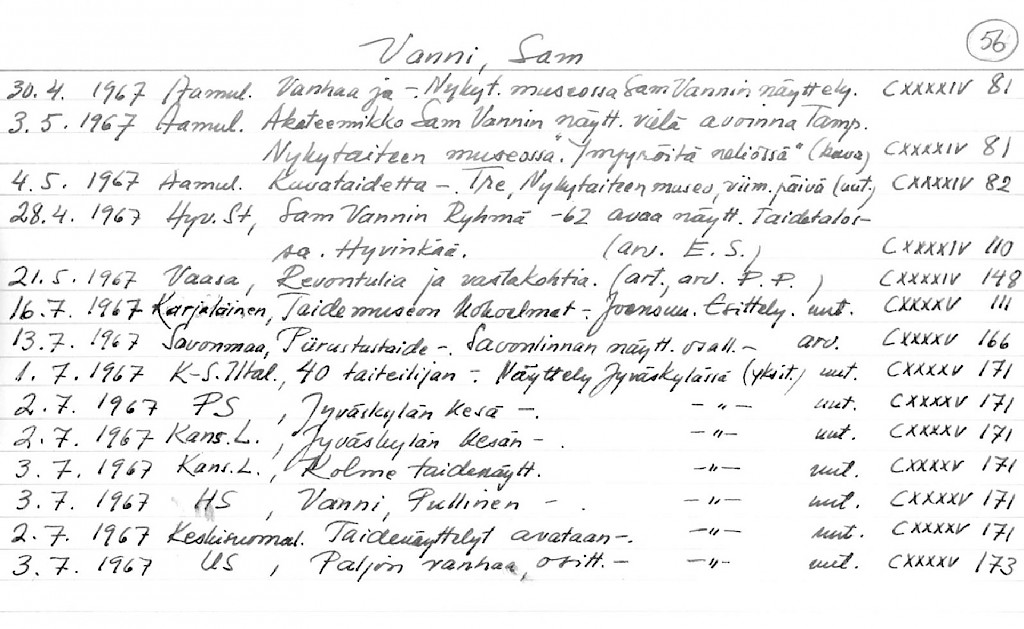 56
Vanni, Sam
30.4. 1967 Aamul. Vanhaa ja -. Nykyt. museossa Sam Vannin näyttely. CXXXXIV 81
3.5. 1967 Aamul. Akateemikko Sam Vannin näytt. vielä avoinna Tamp.
Nykytaiteen museossa. "Ympyröitä neliössä" (kuva) CXXXXIV 81
4.5. 1967 Aamul. Kuvataidetta -. Tre, Nykytaiteen museo, viim. päivä (uut.) CXXXXIV 82
28.4. 1967 Hyv. St, Sam Vannin Ryhmä -62 avaa näytt. Taidetalos-
sa. Hyvinkää. (arv. E. S.) CXXXXIV 110
21.5. 1967 Vaasa, Revontulia ja vastakohtia. (art., arv. P. P. ) CXXXXIV 148
16.7. 1967 Karjalainen, Taidemuseon kokoelmat -. Joensuu. Esittely. uut. CXXXXV 111
13.7. 1967 Savonmaa, Piirustustaide -. Savonlinnan näytt. osall. - arv. CXXXXV 166
1.7. 1967 K-S. Iltal., 40 taiteilijan -. Näyttely Jyväskylässä (yksit.) uut. CXXXXV 171
2.7. 1967 PS , Jyväskylän kesä -. -"- uut. CXXXXV 171
2.7. 1967 Kans. L. , Jyväskylän kesän - . -"- uut. CXXXXV 171
3.7. 1967 Kans. L. , Kolme taidenäytt. -"- uut. CXXXXV 171
3.7. 1967 HS , Vanni, Pullinen - -"- uut. CXXXXV 171
2.7. 1967 Keskisuomal. Taidenäyttelyt avataan -. -"- uut. CXXXXV 171
3.7. 1967 US , Paljon vanhaa, ositt. - -"- uut. CXXXXV 173